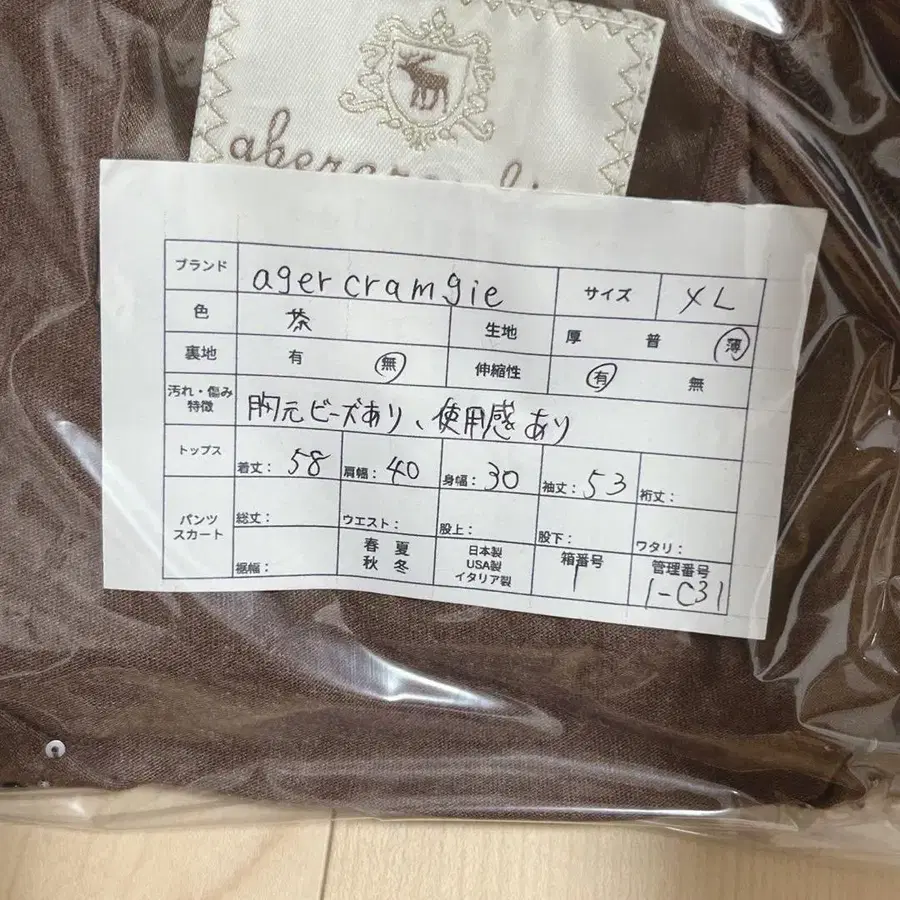 abercrombie
ブランド agercramgie サイズ XL
色 茶 生地 厚 普 薄
裏地 有 無 伸縮性 有 無
汚れ・傷み
特徴 胸元ビーズあり、使用感あり
トップス 着丈: 58 肩幅: 40 身幅: 30 袖丈: 53 裄丈:
パンツ
スカート 総丈: ウエスト: 股上: 股下: ワタリ:
裾幅: 春 夏
秋 冬 日本製
USA製
イタリア製 箱番号
1 管理番号
1-C31